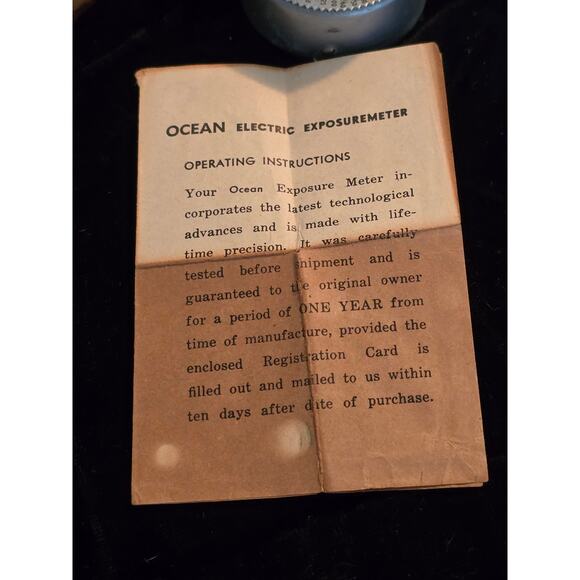 OCEAN ELECTRIC EXPOSUREMETER
OPERATING INSTRUCTIONS
Your Ocean Exposure Meter in-
corporates the latest technological
advances and is made with life-
time precision. It was carefully
tested before shipment and is
guaranteed to the original owner
for a period of ONE YEAR from
time of manufacture, provided the
enclosed Registration Card is
filled out and mailed to us within
ten days after date of purchase.